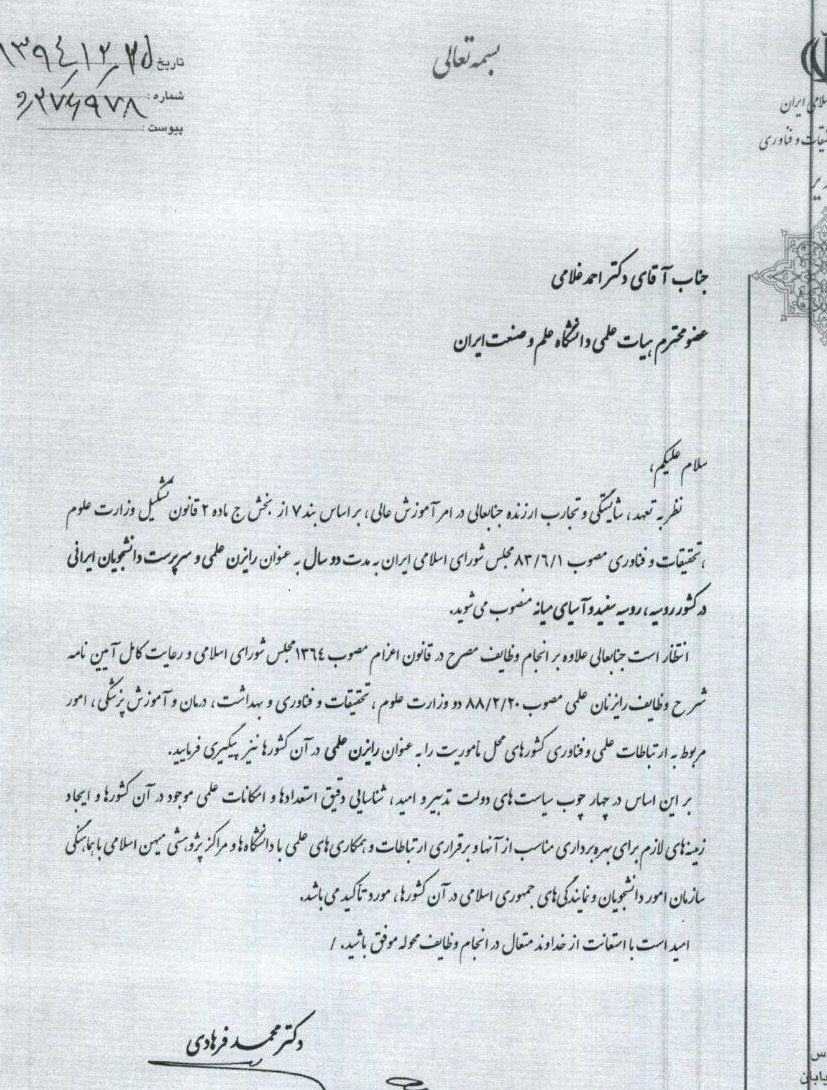 بسمه تعالی
تاریخ: ۱۳۹٤/۱۲/۲۵
شماره: ۲۷۶۹۷۸/و
پیوست:
اسلامی ایران
تحقیقات و فناوری
جناب آقای دکتر احمد غلامی
عضو محترم هیات علمی دانشگاه علم و صنعت ایران
سلام علیکم،
نظر به تعهد، شایستگی و تجارب ارزنده جنابعالی در امر آموزش عالی، بر اساس بند ۷ از بخش ج ماده ۲ قانون تشکیل وزارت علوم
، تحقیقات و فناوری مصوب ۸۳/٦/۱ مجلس شورای اسلامی ایران به مدت دو سال به عنوان رایزن علمی و سرپرست دانشجویان ایرانی
در کشور روسیه، روسیه سفید و آسیای میانه منصوب می شوید.
انتظار است جنابعالی علاوه بر انجام وظایف مصرح در قانون اعزام مصوب ۱۳٦٤ مجلس شورای اسلامی و رعایت کامل آیین نامه
شرح وظایف رایزنان علمی مصوب ۸۸/۲/۲۰ دو وزارت علوم، تحقیقات و فناوری و بهداشت، درمان و آموزش پزشکی، امور
مربوط به ارتباطات علمی و فناوری کشورهای محل مأموریت را به عنوان رایزن علمی در آن کشورها نیز پیگیری فرمایید.
بر این اساس در چهار چوب سیاست های دولت تدبیر و امید، شناسایی دقیق استعدادها و امکانات علمی موجود در آن کشورها و ایجاد
زمینه های لازم برای بهره برداری مناسب از آنها و برقراری ارتباطات و همکاری های علمی با دانشگاه ها و مراکز پژوهشی میهن اسلامی با هماهنگی
سازمان امور دانشجویان و نمایندگی های جمهوری اسلامی در آن کشورها، مورد تأکید می باشد.
امید است با استعانت از خداوند متعال در انجام وظایف محوله موفق باشید. /
دکتر محمد فرهادی